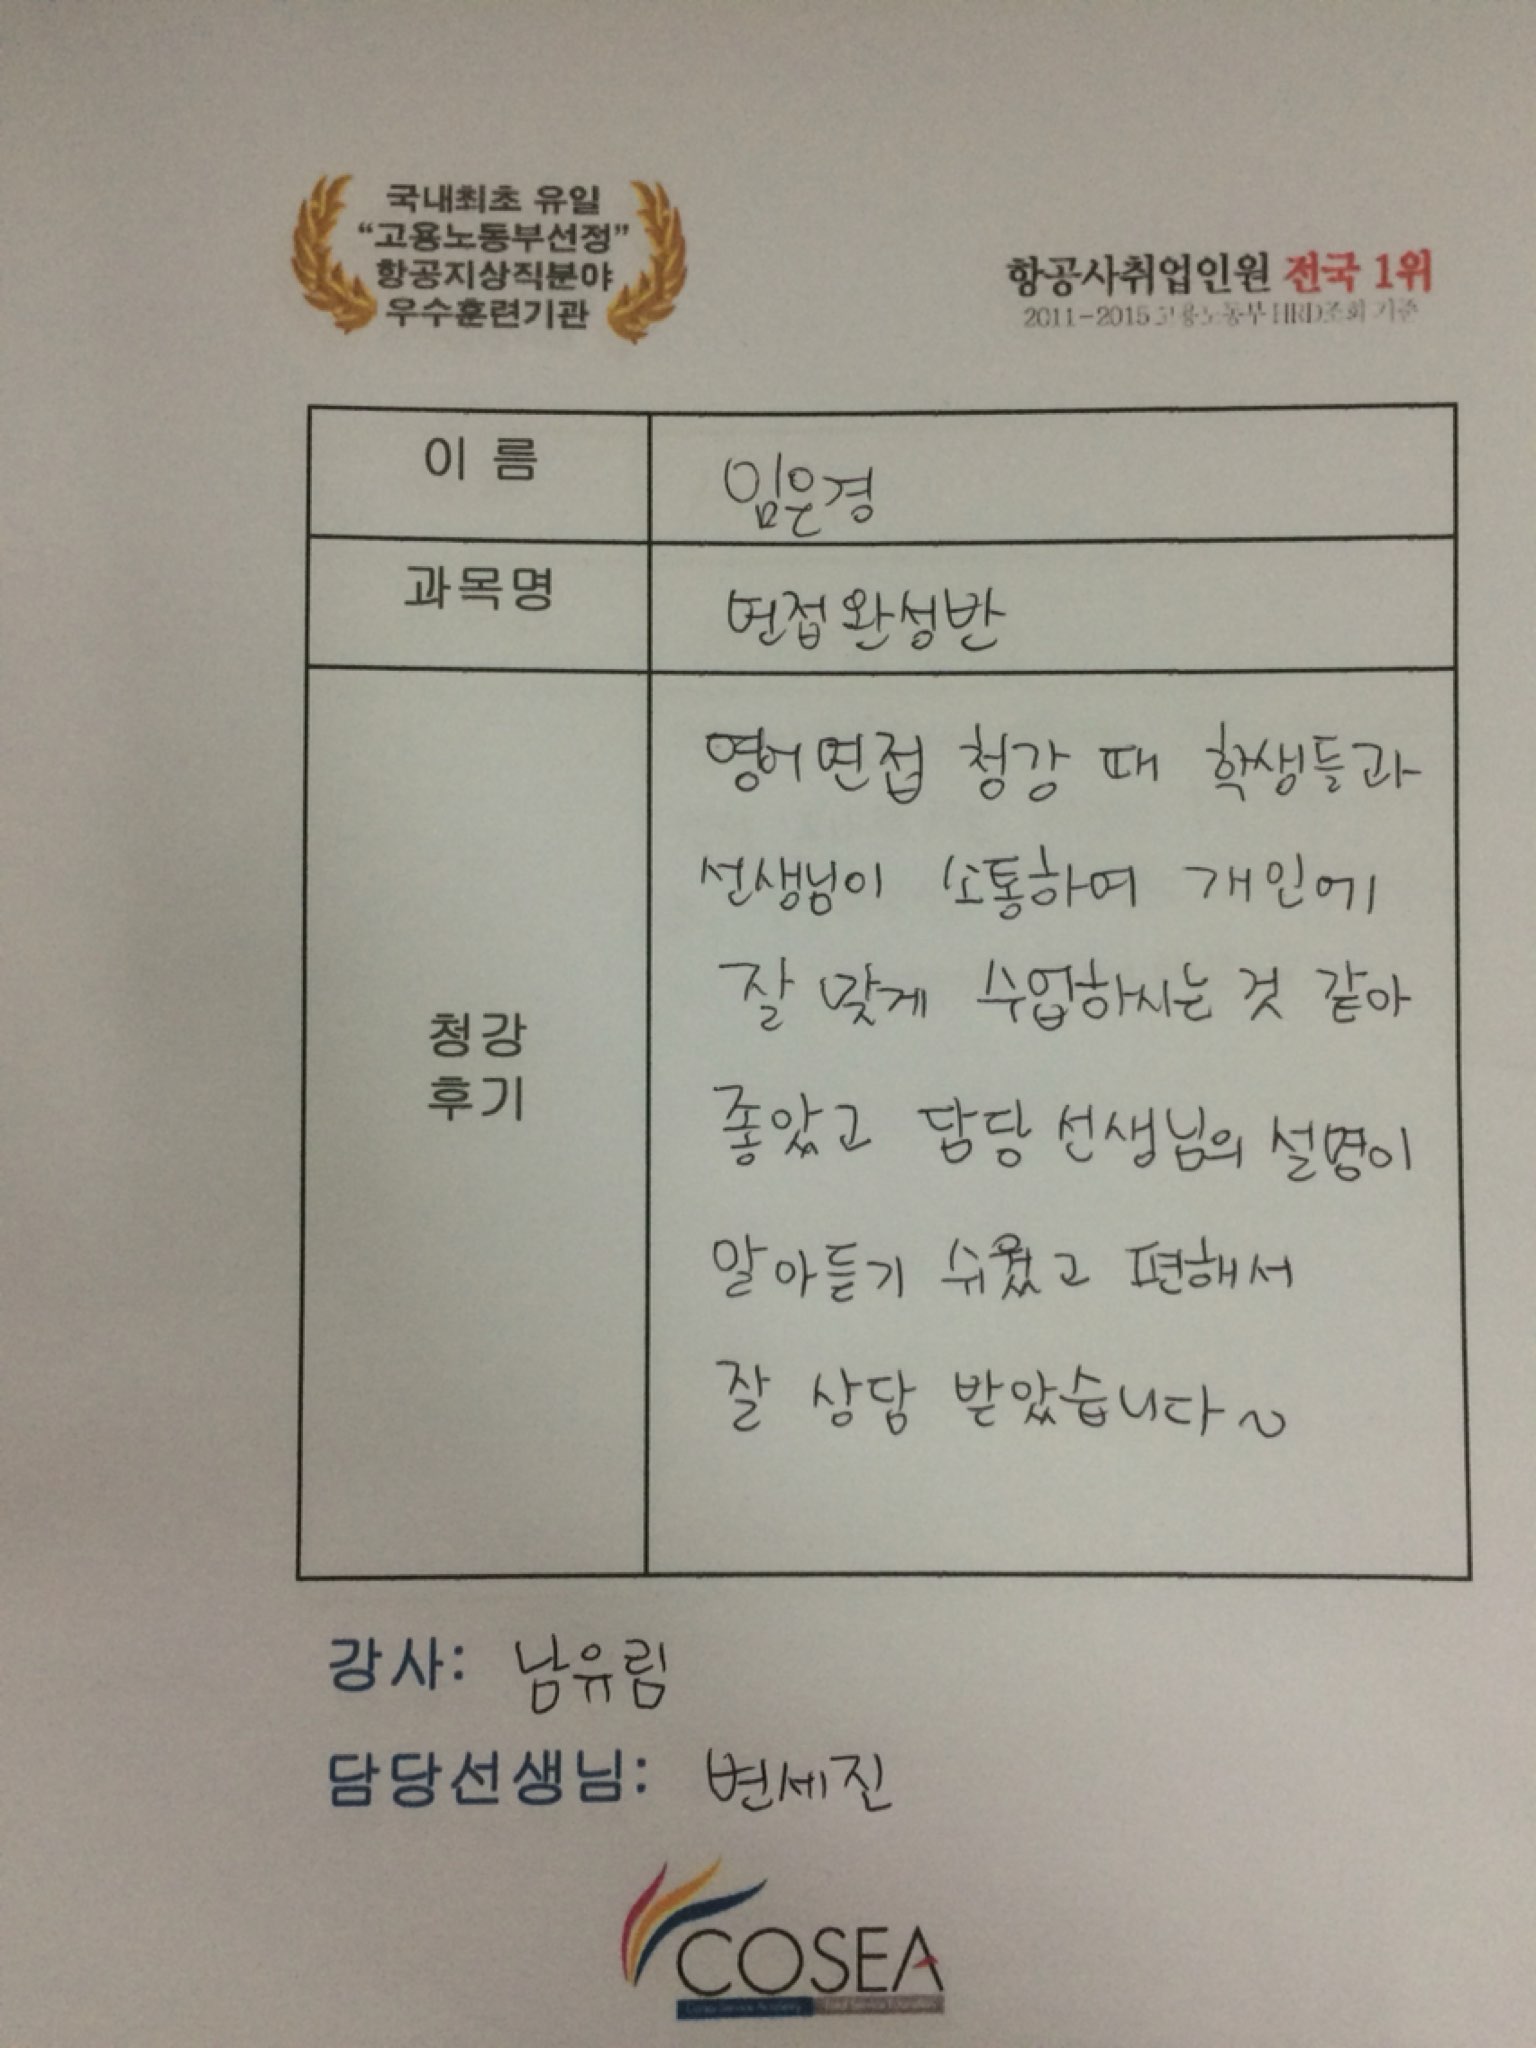 국내최초 유일
“고용노동부선정”
항공지상직분야
우수훈련기관
항공사취업인원 전국 1위
2011-2015 고용노동부 HRD조회 기준
이 름
임은경
과목명
면접완성반
청강
후기
영어면접 청강 때 학생들과
선생님이 소통하여 개인에
잘 맞게 수업하시는 것 같아
좋았고 담당 선생님의 설명이
알아듣기 쉬웠고 편해서
잘 상담 받았습니다~
강사: 남유림
담당선생님: 변세진
COSEA